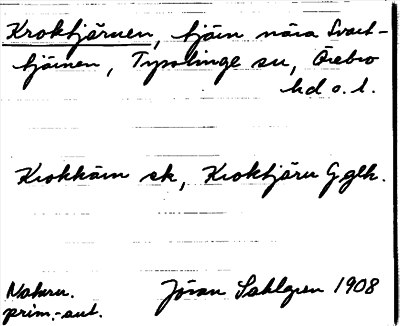 Kroktjärnen, tjärn nära Svart-
tjärnen, Tysslinge sn, Örebro
hd o. l.
Krokkärn ek, Kroktjärn Gglk.
Naturn. Jöran Sahlgren 1908
prim.-aut.